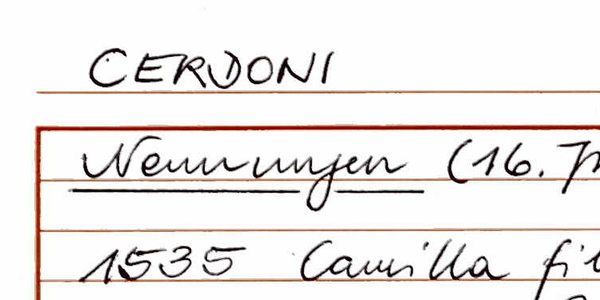 CERDONI
Nennungen (16.
1535 Camilla